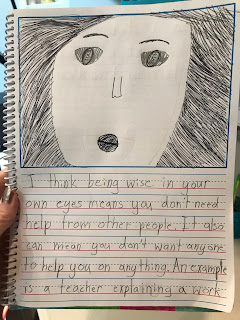 I think being wise in your
own eyes means you don't need
help from other people. It also
can mean you don't want anyone
to help you on anything. An example
is a teacher explaining a work